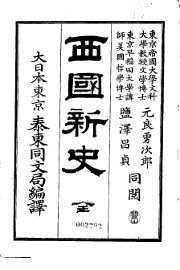 東京帝國大學文科
大學教授文學博士
元良勇次郎
東京早稲田大學講
師美國哲學博士
鹽澤昌貞
同閱
西國新史
全
大日本東京
泰東同文局編譯
002792